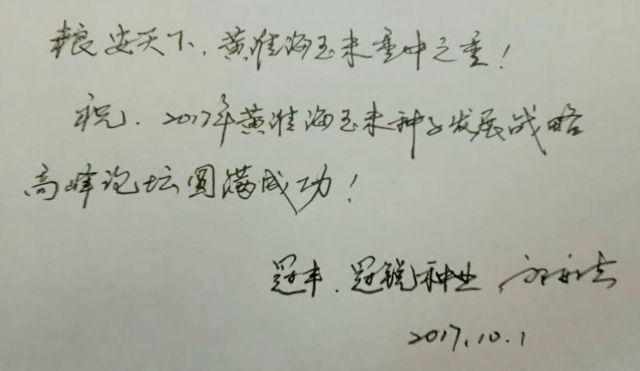 粮安天下，黄淮海玉米重中之重！
祝：2017年黄淮海玉米种子发展战略
高峰论坛圆满成功！
冠丰、冠锐种业
2017.10.1